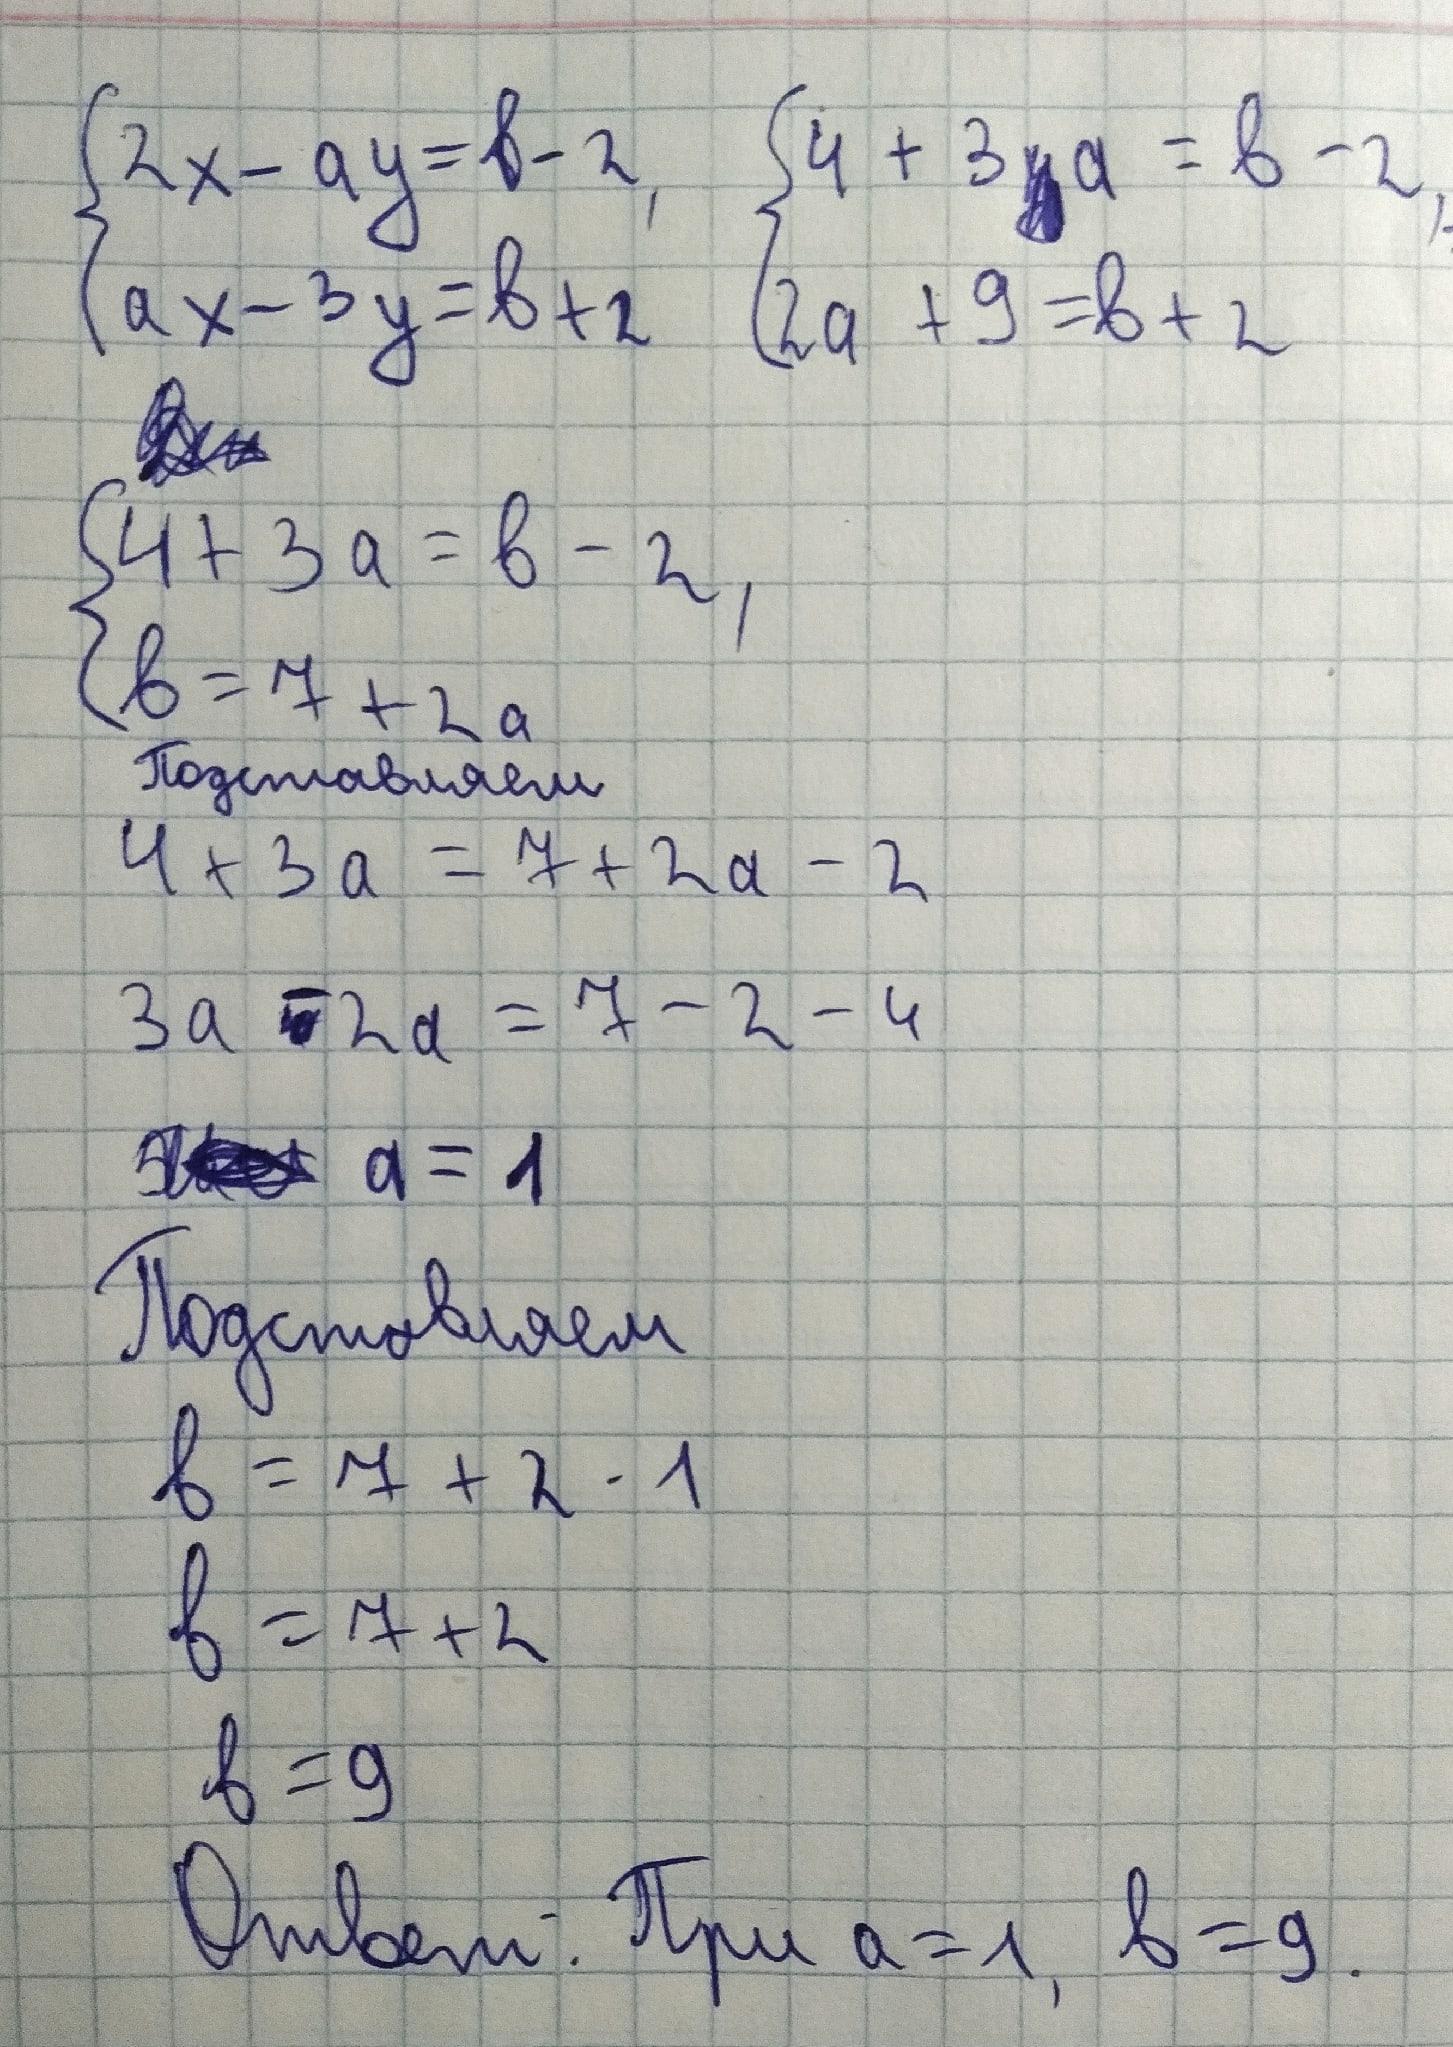 2x - ay = в - 2, 4 + 3a = в - 2,
ax - 3y = в + 2 2a + 9 = в + 2
4 + 3a = в - 2,
в = 7 + 2a
Подставляем
4 + 3a = 7 + 2a - 2
3a - 2a = 7 - 2 - 4
a = 1
Подставляем
в = 7 + 2 · 1
в = 7 + 2
в = 9
Ответ: При a = 1, в = 9.